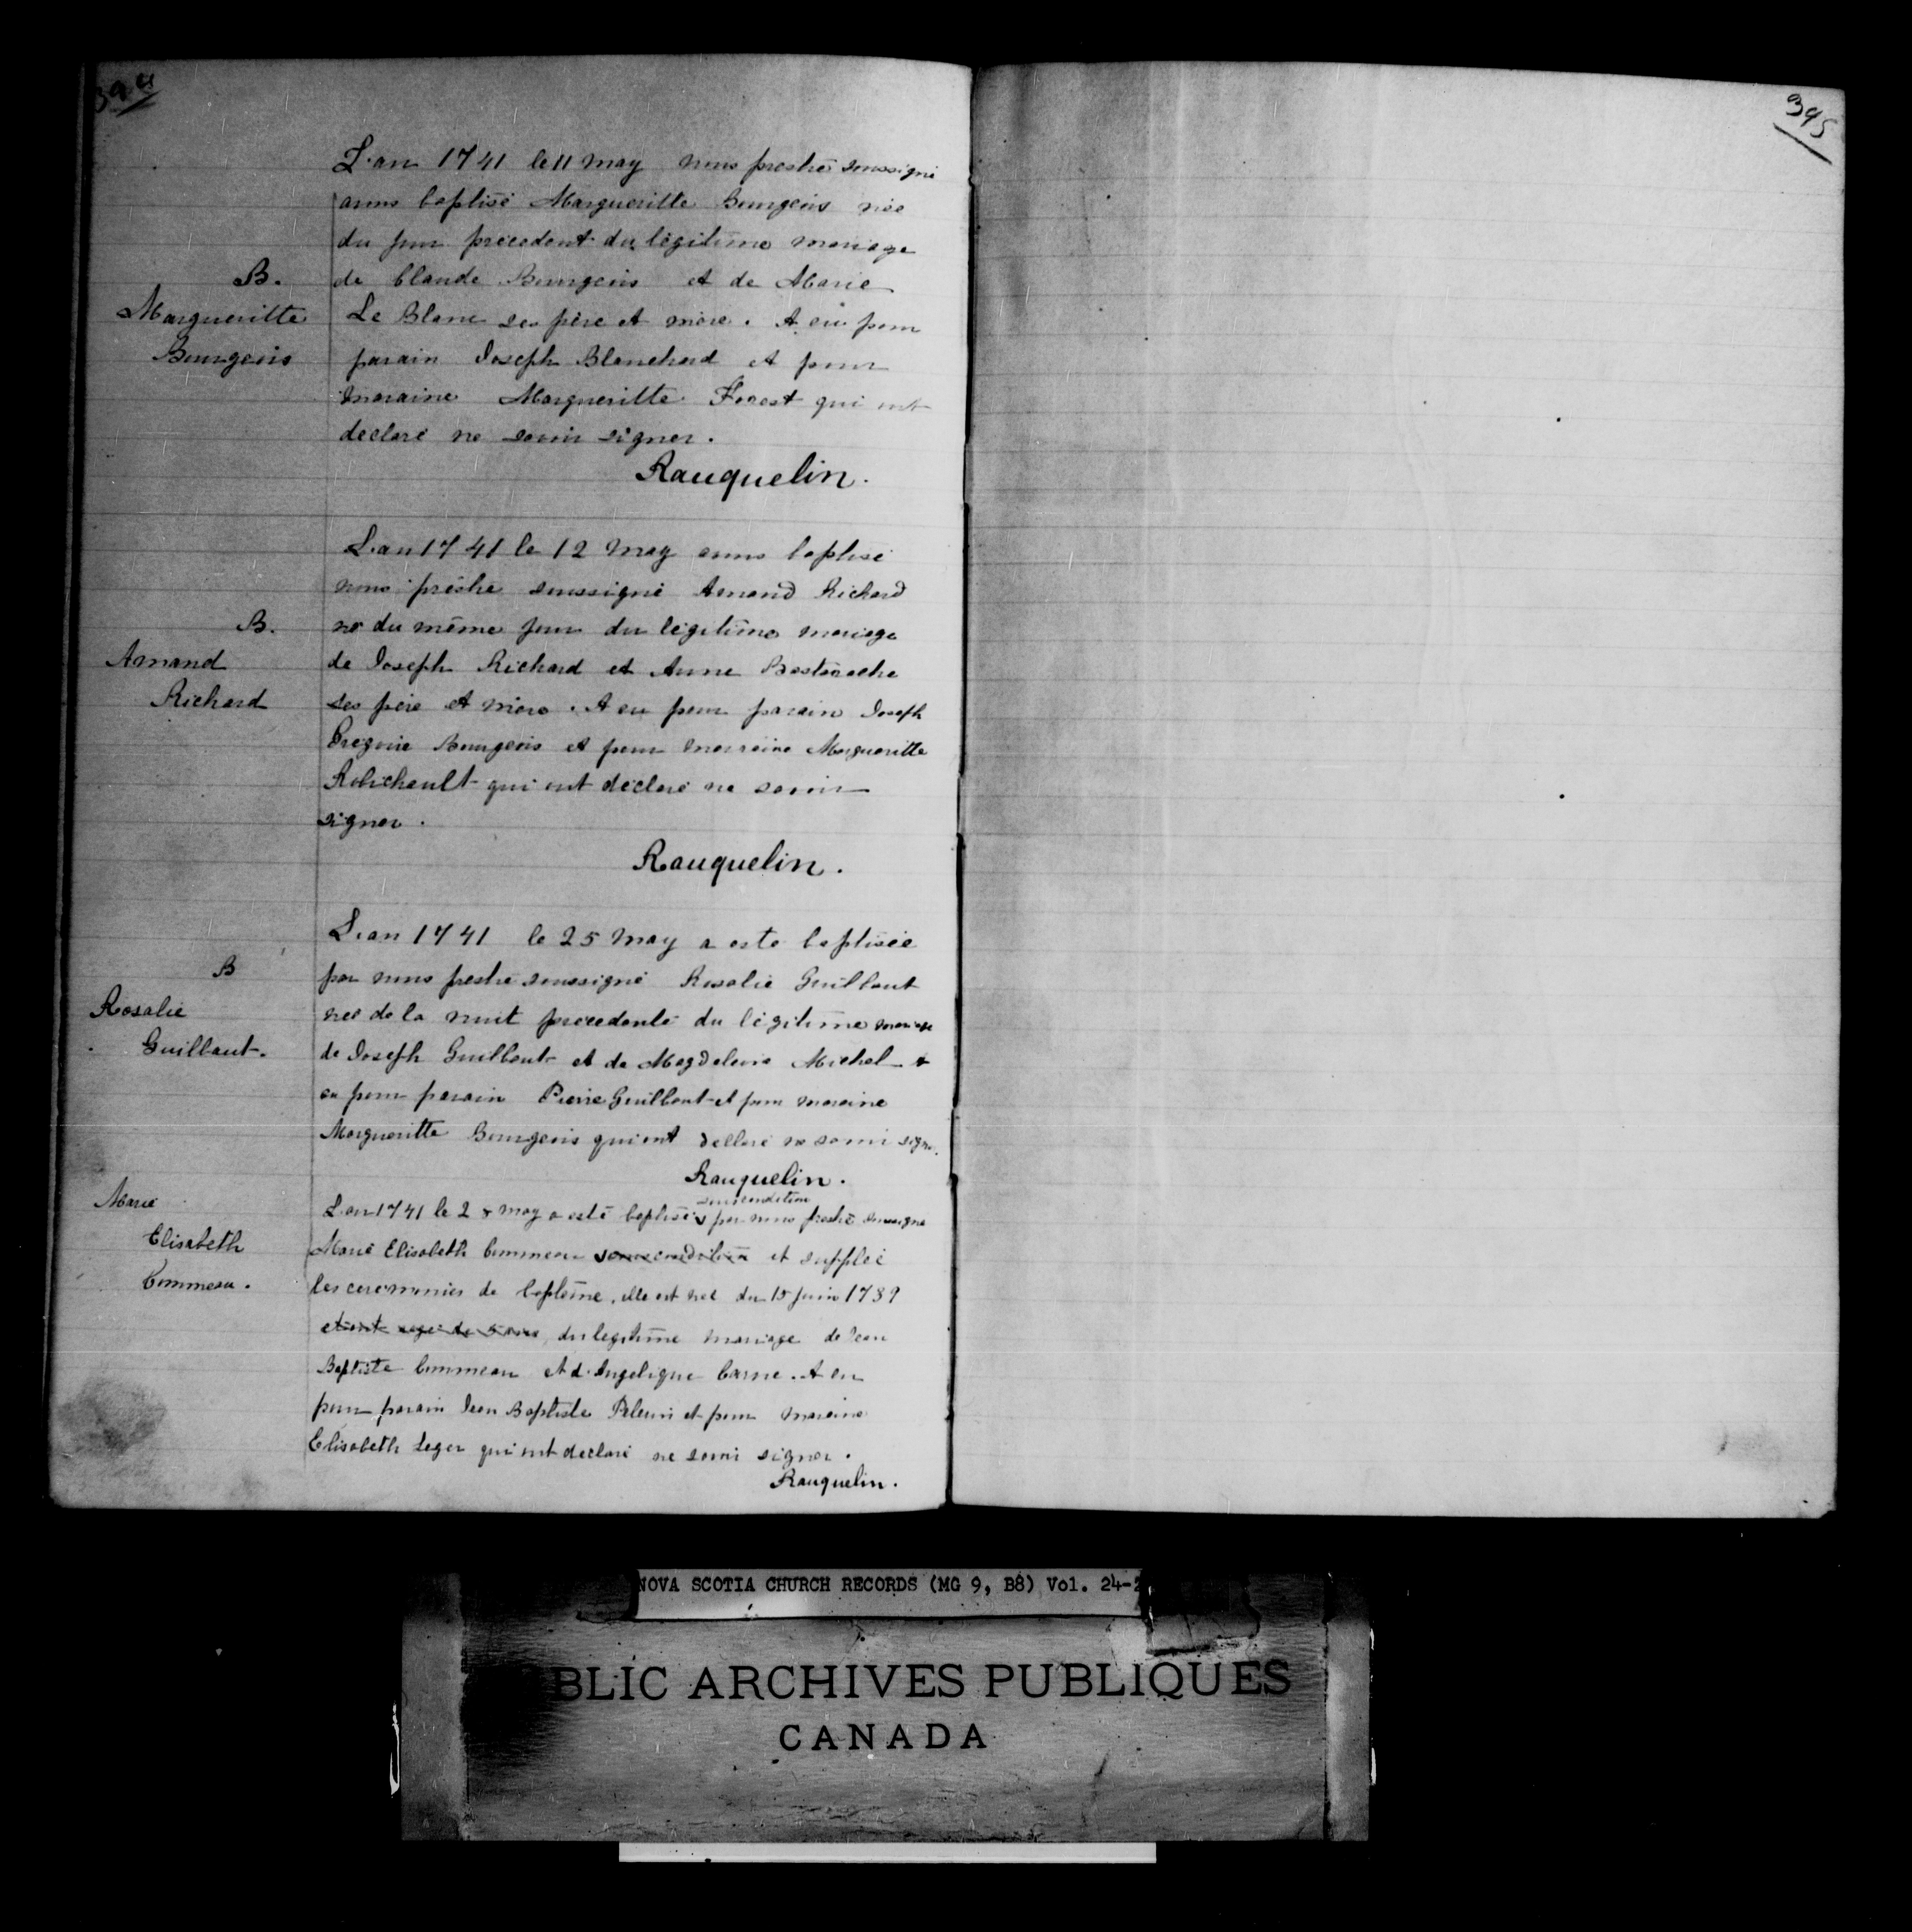 394
L'an 1741 le 11 may nous prestre soussigné
B.
Margueritte
Bourgeois
avons baptisé Margueritte Bourgeois née
du jour précedent du légitime mariage
de Claude Bourgeois et de Marie
Le Blanc ses père et mère. A eu pour
parain Joseph Blanchard et pour
maraine Margueritte Forest qui ont
declaré ne savoir signer.
Rauquelin.
B.
Amand
Richard
L'an 1741 le 12 may avons baptisé
nous prêstre soussigné Amand Richard
né du même jour du légitime mariage
de Joseph Richard et Anne Bastarache
ses père et mère. A eu pour parain Joseph
Gregoire Bourgeois et pour marraine Margueritte
Robichault qui ont déclaré ne savoir
signer.
Rauquelin.
B
Rosalie
Guillaut.
L'an 1741 le 25 may a esté baptisée
par nous prestre soussigné Rosalie Guillaut
née de la nuit precedente du légitime mariage
de Joseph Guillaut et de Magdeleine Michel a
eu pour parain Pierre Guillaut et pour maraine
Margueritte Bourgeois qui ont declaré ne savoir signer.
Rauquelin.
Marie
Elisabeth
Commeau.
sous condition
L'an 1741 le 28 may a esté baptisée par nous prestre soussigné
Marie Elisabeth Commeau sous condition et supplée
les ceremonies de baptême, elle est née du 15 juin 1739
etant agée de 5 ans, du legitime mariage de Jean
Baptiste Commeau et d'Angelique Carne. A eu
pour parain Jean Baptiste Pelerin et pour maraine
Elisabeth Leger qui ont declaré ne savoir signer.
Rauquelin.
395
NOVA SCOTIA CHURCH RECORDS (MG 9, B8) Vol. 24-2
BLIC ARCHIVES PUBLIQUES
CANADA